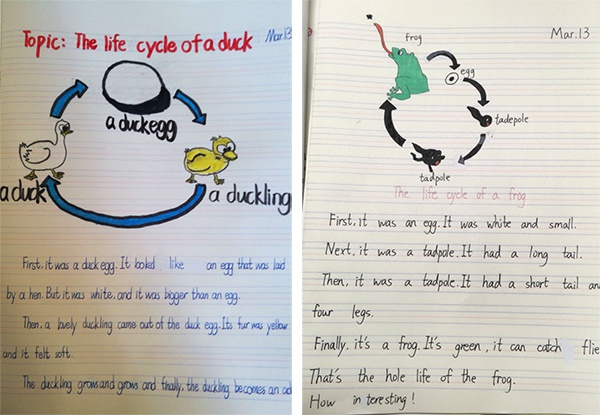 Topic: The life cycle of a duck
Mar.13
a duck egg
a duck
a duckling
First, it was a duck egg. It looked like an egg that was laid
by a hen. But it was white, and it was bigger than an egg.
Then, a lovely duckling came out of the duck egg. Its fur was yellow
and it felt soft.
The duckling grows and grows and finally, the duckling becomes an
Mar.13
frog
egg
tadepole
tadpole
The life cycle of a frog
First, it was an egg. It was white and small.
Next, it was a tadpole. It had a long tail.
Then, it was a tadpole. It had a short tail an
four legs.
Finally, it's a frog. It's green, it can catch flie
That's the hole life of the frog.
How in teresting!